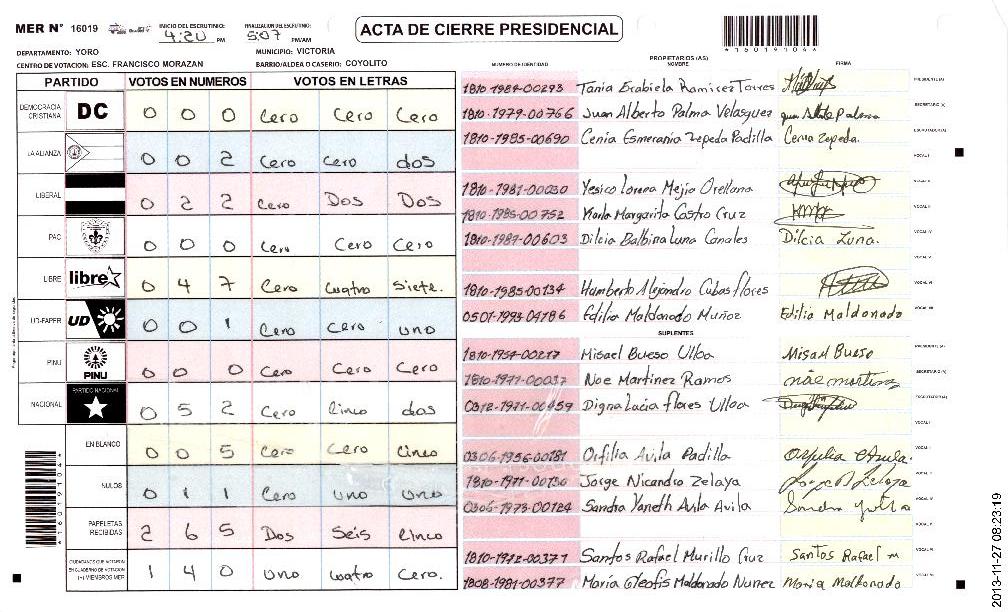 MER N° 16019
INICIO DEL ESCRUTINIO: 4:20 PM
FINALIZACION DEL ESCRUTINIO: 5:07 PM/AM
ACTA DE CIERRE PRESIDENCIAL
160191044
DEPARTAMENTO: YORO
MUNICIPIO: VICTORIA
CENTRO DE VOTACION: ESC. FRANCISCO MORAZAN
BARRIO/ALDEA O CASERIO: COYOLITO
PARTIDO VOTOS EN NUMEROS VOTOS EN LETRAS
DEMOCRACIA CRISTIANA DC 0 0 0 Cero Cero Cero
LA ALIANZA 0 0 2 Cero Cero dos
LIBERAL 0 2 2 Cero Dos Dos
PAC 0 0 0 Cero Cero Cero
LIBRE libre 0 4 7 Cero Cuatro Siete.
UD-FAPER UD 0 0 1 Cero Cero uno
PINU PINU 0 0 0 Cero Cero Cero
NACIONAL PARTIDO NACIONAL 0 5 2 Cero Cinco dos
EN BLANCO 0 0 5 Cero Cero Cinco
NULOS 0 1 1 Cero uno uno
PAPELETAS RECIBIDAS 2 6 5 Dos Seis Cinco
CIUDADANOS QUE VOTARON EN CUADERNO DE VOTACION (+) MIEMBROS MER 1 4 0 uno Cuatro Cero.
PROPIETARIOS (AS)
NUMERO DE IDENTIDAD NOMBRE FIRMA
1810-1984-00293 Tania Erabiela Ramirez Torres PRESIDENTE (A)
1810-1979-00766 Juan Alberto Palma Velasquez SECRETARIO (A)
1810-1985-00690 Cenia Esmerania Zepeda Padilla Cenia Zepeda. ESCRUTADOR (A)
VOCAL I
1810-1981-00030 Yesica Lorena Mejia Orellana VOCAL II
1810-1985-00752 Karla Margarita Castro Cruz VOCAL III
1810-1987-00603 Dilcia Balbina Luna Canales Dilcia Luna. VOCAL IV
VOCAL V
1810-1985-00134 Humberto Alejandro Cubas flores VOCAL VI
0501-1993-04786 Edilia Maldonado Muñoz Edilia Maldonado VOCAL VII
SUPLENTES
1810-1954-00217 Misael Bueso Ulloa Misael Bueso PRESIDENTE (A)
1810-1971-00037 Noe Martinez Ramos noe martinez SECRETARIO (A)
0312-1971-00459 Digna Lucia flores Ulloa ESCRUTADOR (A)
VOCAL I
0306-1956-00181 Orfilia Avila Padilla VOCAL II
1810-1971-00130 Jorge Nicandro Zelaya VOCAL III
0306-1973-00124 Sandra Yaneth Avila Avila VOCAL IV
VOCAL V
1810-1972-00371 Santos Rafael Murillo Cruz Santos Rafael m VOCAL VI
1808-1981-00377 Maria Cleofis Maldonado Nunez Maria Maldonado VOCAL VII
2013-11-27 08:23:19